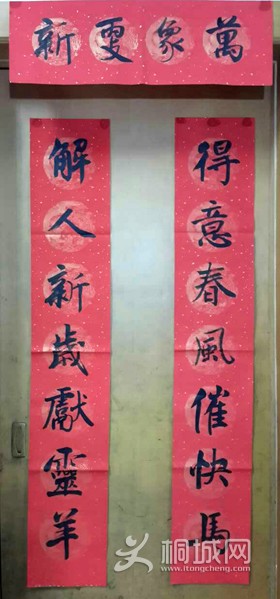 萬象更新
得意春風催快馬
解人新歲獻靈羊
桐城网
www.itongcheng.com